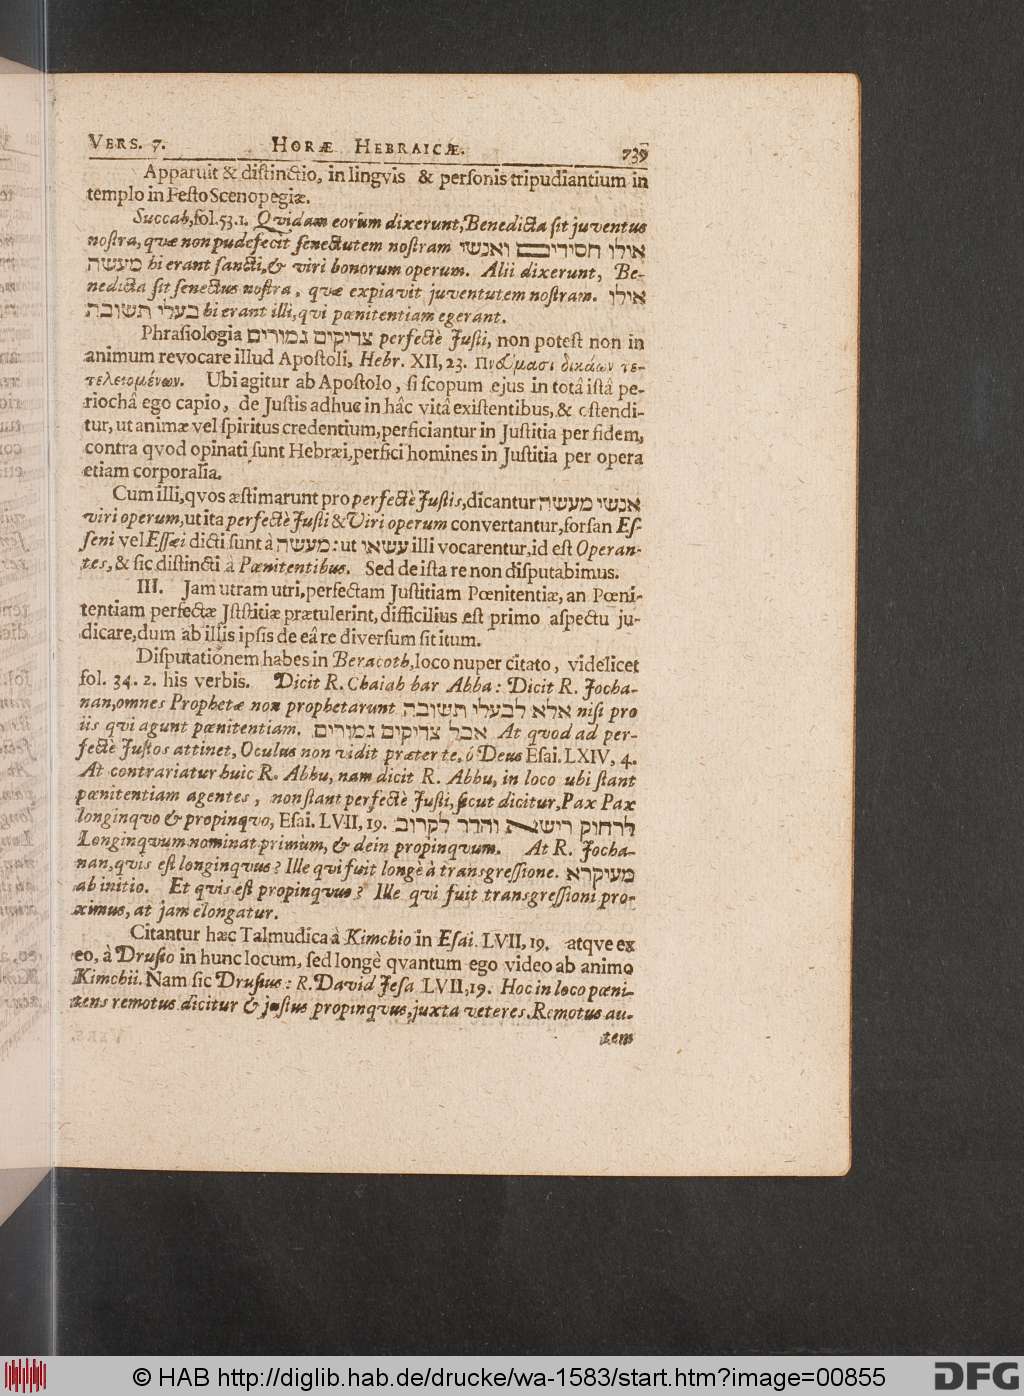 VERS. 7. HORÆ HEBRAICÆ. 739
Apparuit & distinctio, in lingvis & personis tripudiantium in
templo in Festo Scenopegiæ.
Succah, fol. 53. 1. Qvidam eorum dixerunt, Benedicta sit juventus
nostra, qvæ non pudefecit senectutem nostram אילו חסידים ואנשי
מעשה hi erant sancti, & viri bonorum operum. Alii dixerunt, Be-
nedicta sit senectus nostra, qvæ expiavit juventutem nostram. אילו
בעלי תשובה hi erant illi, qvi pœnitentiam egerant.
Phrasiologia צדיקים גמורים perfectè Justi, non potest non in
animum revocare illud Apostoli, Hebr. XII, 23. Πνεύμασι δικάων τε-
τελειομένων. Ubi agitur ab Apostolo, si scopum ejus in totâ istâ pe-
riochâ ego capio, de Justis adhuc in hâc vitâ existentibus, & ostendi-
tur, ut animæ vel spiritus credentium, perficiantur in Justitia per fidem,
contra qvod opinati sunt Hebræi, perfici homines in Justitia per opera
etiam corporalia.
Cum illi, qvos æstimarunt pro perfectè Justis, dicantur אנשי מעשה
viri operum, ut ita perfectè Justi & Viri operum convertantur, forsan Es-
seni vel Essæi dicti sunt à מעשה: ut עשאי illi vocarentur, id est Operan-
tes, & sic distincti à Pœnitentibus. Sed de ista re non disputabimus.
III. Jam utram utri, perfectam Justitiam Pœnitentiæ, an Pœni-
tentiam perfectæ Jststitiæ prætulerint, difficilius est primo aspectu ju-
dicare, dum ab illis ipsis de eâ re diversum sit itum.
Disputationem habes in Beracoth, loco nuper citato, videlicet
fol. 34. 2. his verbis. Dicit R. Chaiah bar Abba: Dicit R. Jocha-
nan, omnes Prophetæ non prophetarunt אלא לבעלי תשובה nisi pro
iis qvi agunt pœnitentiam. אבל צדיקים גמורים At qvod ad per-
fectè Justos attinet, Oculus non vidit præter te, ó Deus Esai. LXIV, 4.
At contrariatur huic R. Abhu, nam dicit R. Abhu, in loco ubi stant
pœnitentiam agentes, non stant perfectè Justi, sicut dicitur, Pax Pax
longinqvo & propinqvo, Esai. LVII, 19. לרחוק רישא והדר לקרוב
Longinqvum nominat primùm, & dein propinqvum. At R. Jocha-
nan, qvis est longinqvus? Ille qvi fuit longè à transgressione. מעיקרא
ab initio. Et qvis est propinqvus? Ille qvi fuit transgressioni pro-
ximus, at jam elongatur.
Citantur hæc Talmudica à Kimchio in Esai. LVII, 19. atqve ex
eo, à Drusio in hunc locum, sed longè qvantum ego video ab animo
Kimchii. Nam sic Drusius: R. David Jesa LVII, 19. Hoc in loco pœni-
tens remotus dicitur & justus propinqvus, juxta veteres. Remotus au-
tem
© HAB http://diglib.hab.de/drucke/wa-1583/start.htm?image=00855
DFG